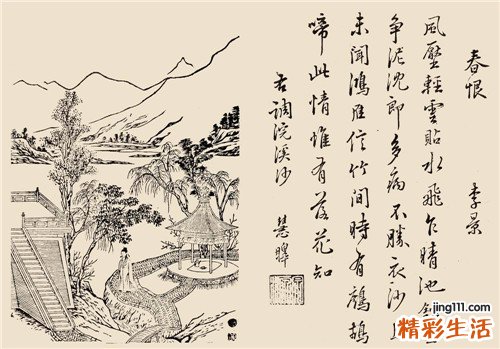 春恨 李景
風壓輕雲貼水飛乍晴池
爭泥沈郎多病不勝衣沙上
未聞鴻雁信竹間時有鷓鴣
啼此情惟有落花知
右調浣溪沙
jing111.com
精彩生活